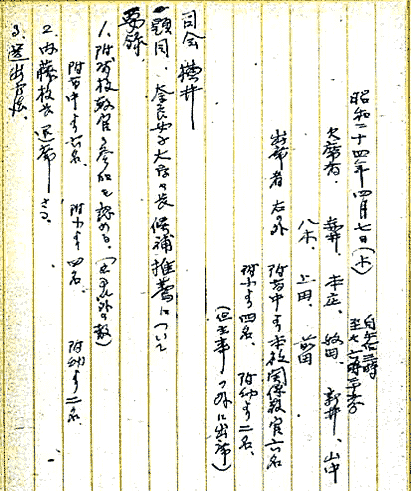 昭和二十四年四月七日(木) 自午後三時
至七時三十分
欠席者、 本庄、 新井、山中
八木、 上田、 前田
出席者 右の外 附高中より本校関係教官六名
附小より四名、 附幼より二名、
(但主事の外に出席)
司会 横井
題目、 奈良女子大学々長候補推薦について
要録、
1. 附属校教官の参加を認める、
附高中より六名、 附小より四名、 附幼より二名、
2. 内藤校長退席さる、
3. 選出方法、